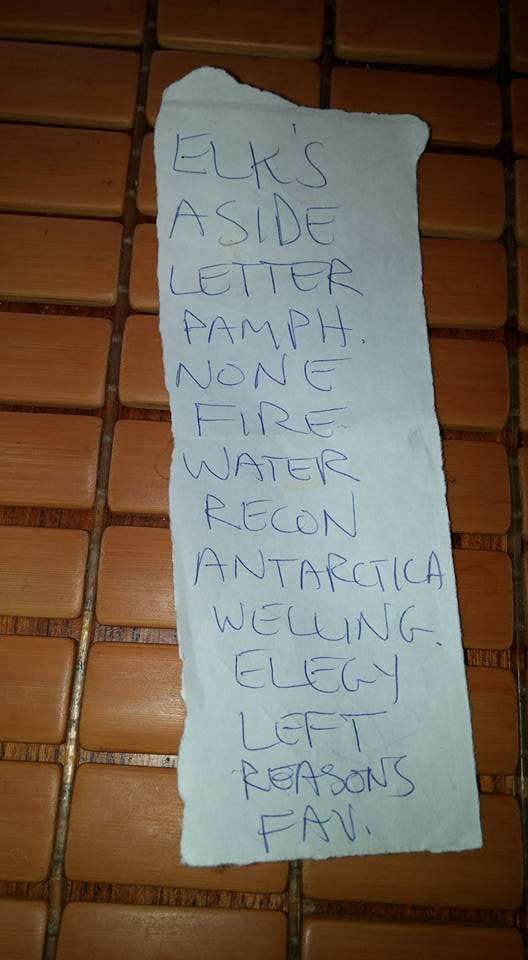 ELK'S
ASIDE
LETTER
PAMPH.
NONE
FIRE
WATER
RECON
ANTARCTICA
WELLING.
ELEGY
LEFT
REASONS
FAV.